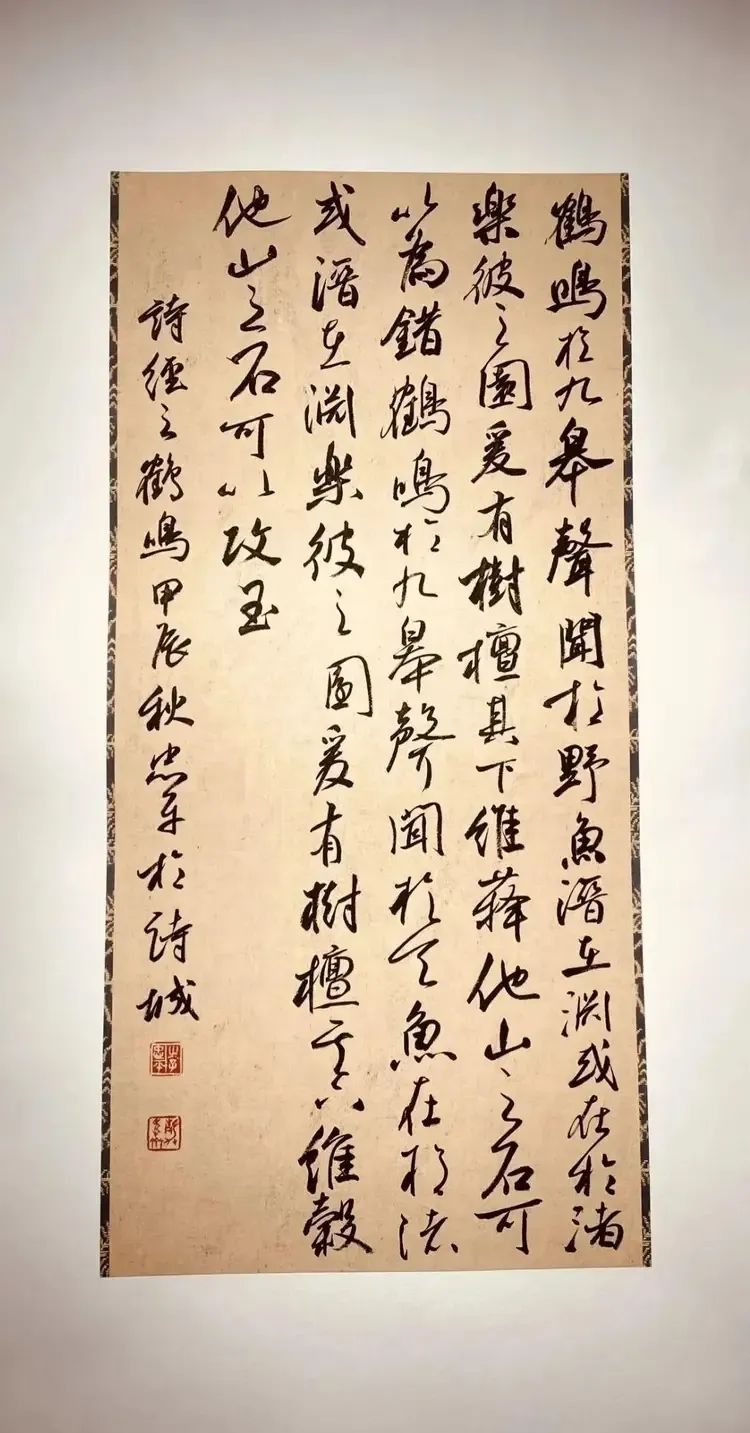 鶴鳴於九皋聲聞於野魚潛在淵或在於渚
樂彼之園爰有樹檀其下維蘀他山之石可
以為錯鶴鳴於九皋聲聞於天魚在於渚
或潛在淵樂彼之園爰有樹檀其下維穀
他山之石可以攻玉
詩經之鶴鳴甲辰秋忠平於詩城